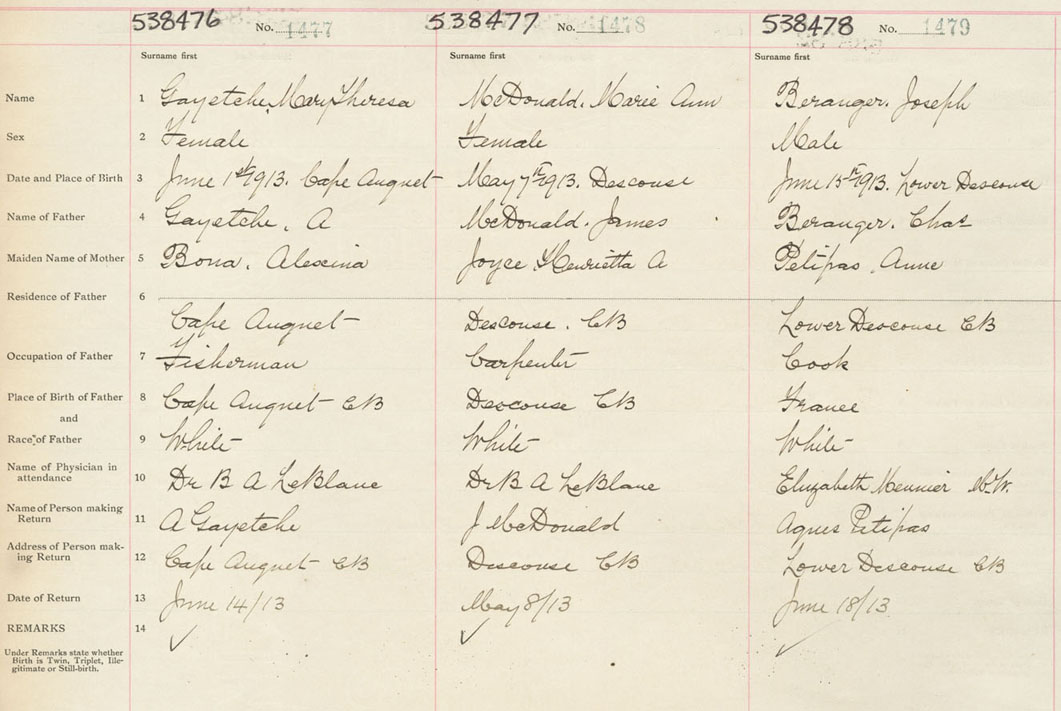 538476 No. 1477 538477 No. 1478 538478 No. 1479
Surname first Surname first Surname first
Name 1 Gayetche, Mary Theresa McDonald. Marie Ann Beranger. Joseph
Sex 2 Female Female Male
Date and Place of Birth 3 June 1st 1913. Cape Auguet May 7th 1913. Descouse June 15th 1913. Lower Descouse
Name of Father 4 Gayetche, A McDonald. James Beranger. Chas
Maiden Name of Mother 5 Bona, Alexina Joyce Henrietta A Petipas, Anne
Residence of Father 6
Cape Auguet Descouse. CB Lower Descouse CB
Occupation of Father 7 Fisherman Carpenter Cook
Place of Birth of Father 8 Cape Auguet CB Descouse CB France
and
Race of Father 9 White White White
Name of Physician in
attendance 10 Dr B A LeBlanc Dr B A LeBlanc Elizabeth Meunier M.W.
Name of Person making
Return 11 A Gayetche J McDonald Agnes Petipas
Address of Person mak-
ing Return 12 Cape Auguet CB Descouse CB Lower Descouse CB
Date of Return 13 June 14/13 May 8/13 June 18/13
REMARKS 14 ✓ ✓ ✓
Under Remarks state whether
Birth is Twin, Triplet, Ille-
gitimate or Still-birth.